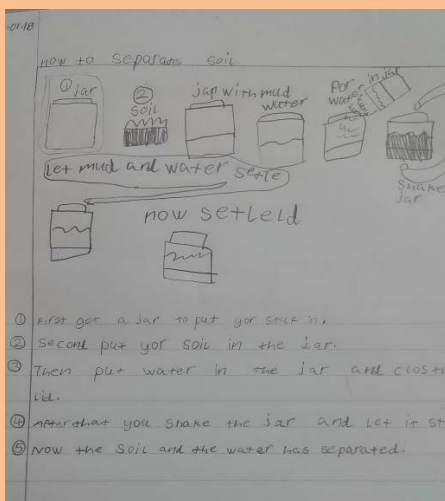 -01-18
how to separate soil
① jar
② soil
jar with mud
water
Por water in jar
Let mud and water setle
Shake jar
now setleld
① First get a jar to put yor stuf in.
② Second put yor soil in the jar.
③ Then put water in the jar and
lid.
④ After that you shake the jar and let it
⑤ Now the soil and the water has separated.